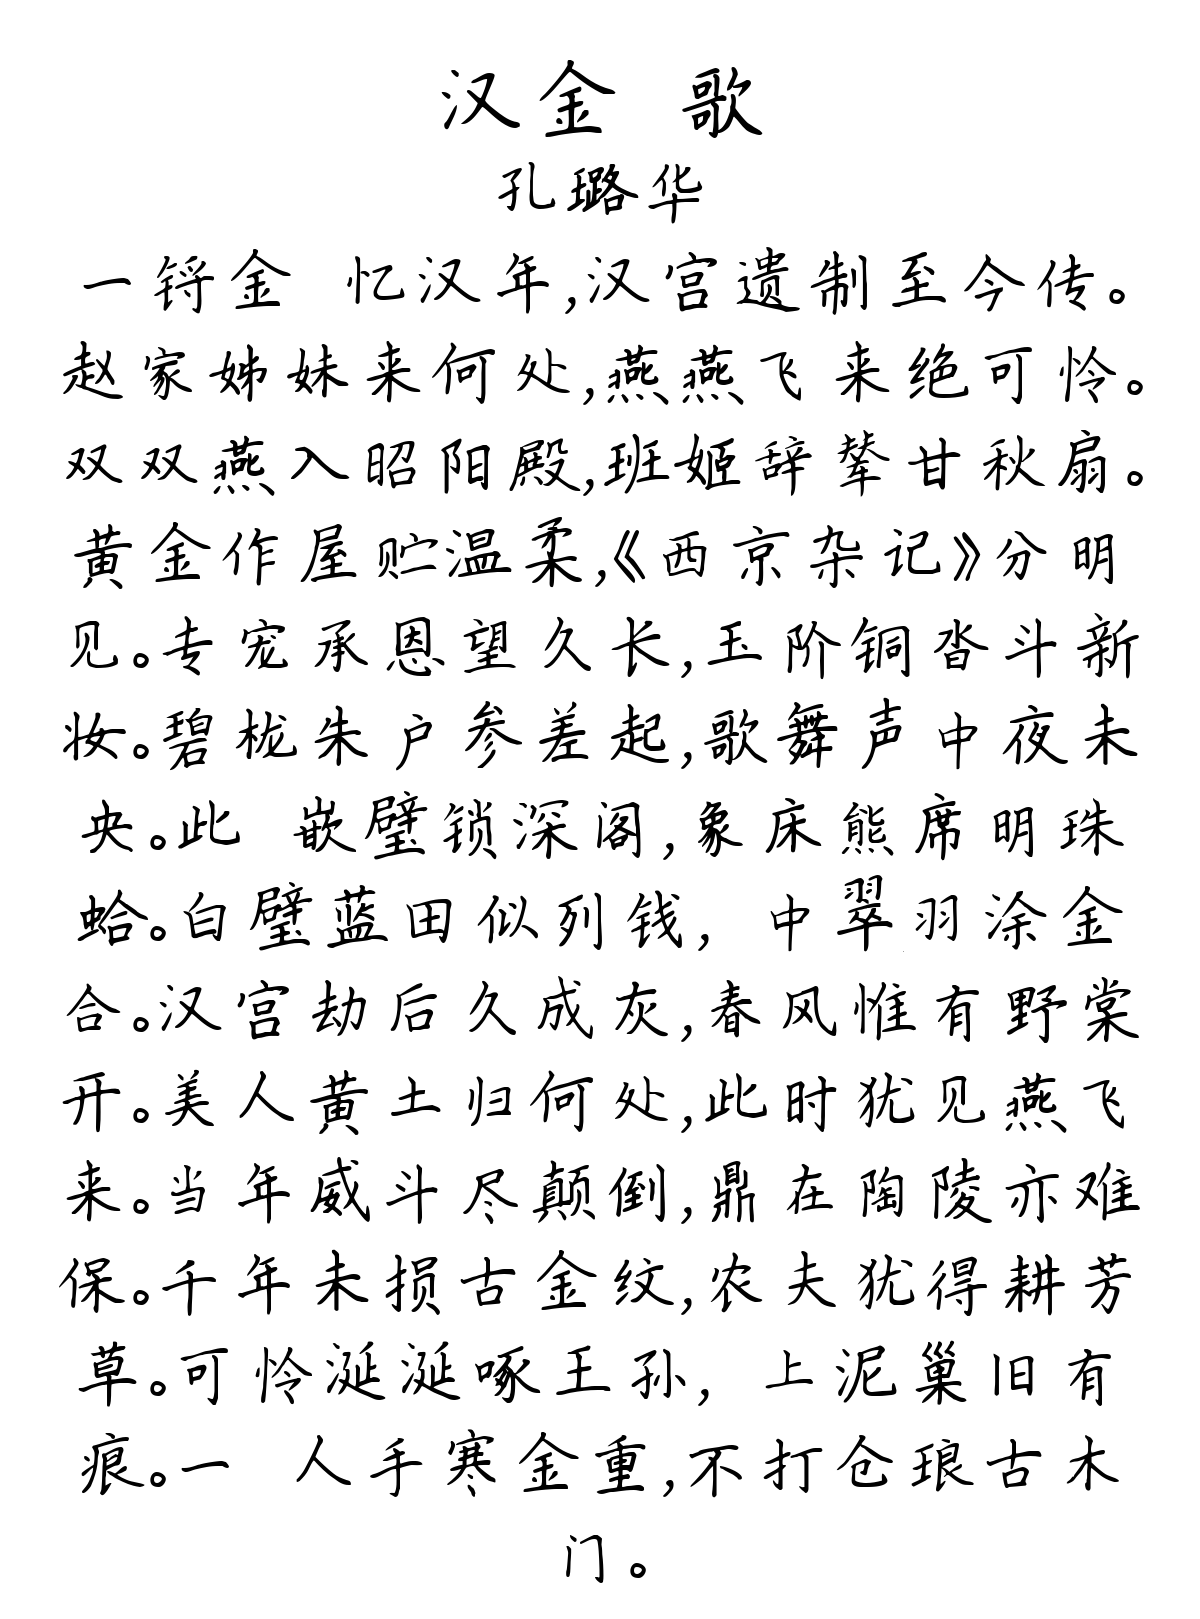 汉金 歌
孔璐华
一锊金 忆汉年,汉宫遗制至今传。
赵家姊妹来何处,燕燕飞来绝可怜。
双双燕入昭阳殿,班姬辞辇甘秋扇。
黄金作屋贮温柔,《西京杂记》分明
见。专宠承恩望久长,玉阶铜沓斗新
妆。碧栊朱户参差起,歌舞声中夜未
央。此 嵌璧锁深阁,象床熊席明珠
蛤。白璧蓝田似列钱, 中翠羽涂金
合。汉宫劫后久成灰,春风惟有野棠
开。美人黄土归何处,此时犹见燕飞
来。当年威斗尽颠倒,鼎在陶陵亦难
保。千年未损古金纹,农夫犹得耕芳
草。可怜涎涎啄王孙, 上泥巢旧有
痕。一 人手寒金重,不打仓琅古木
门。